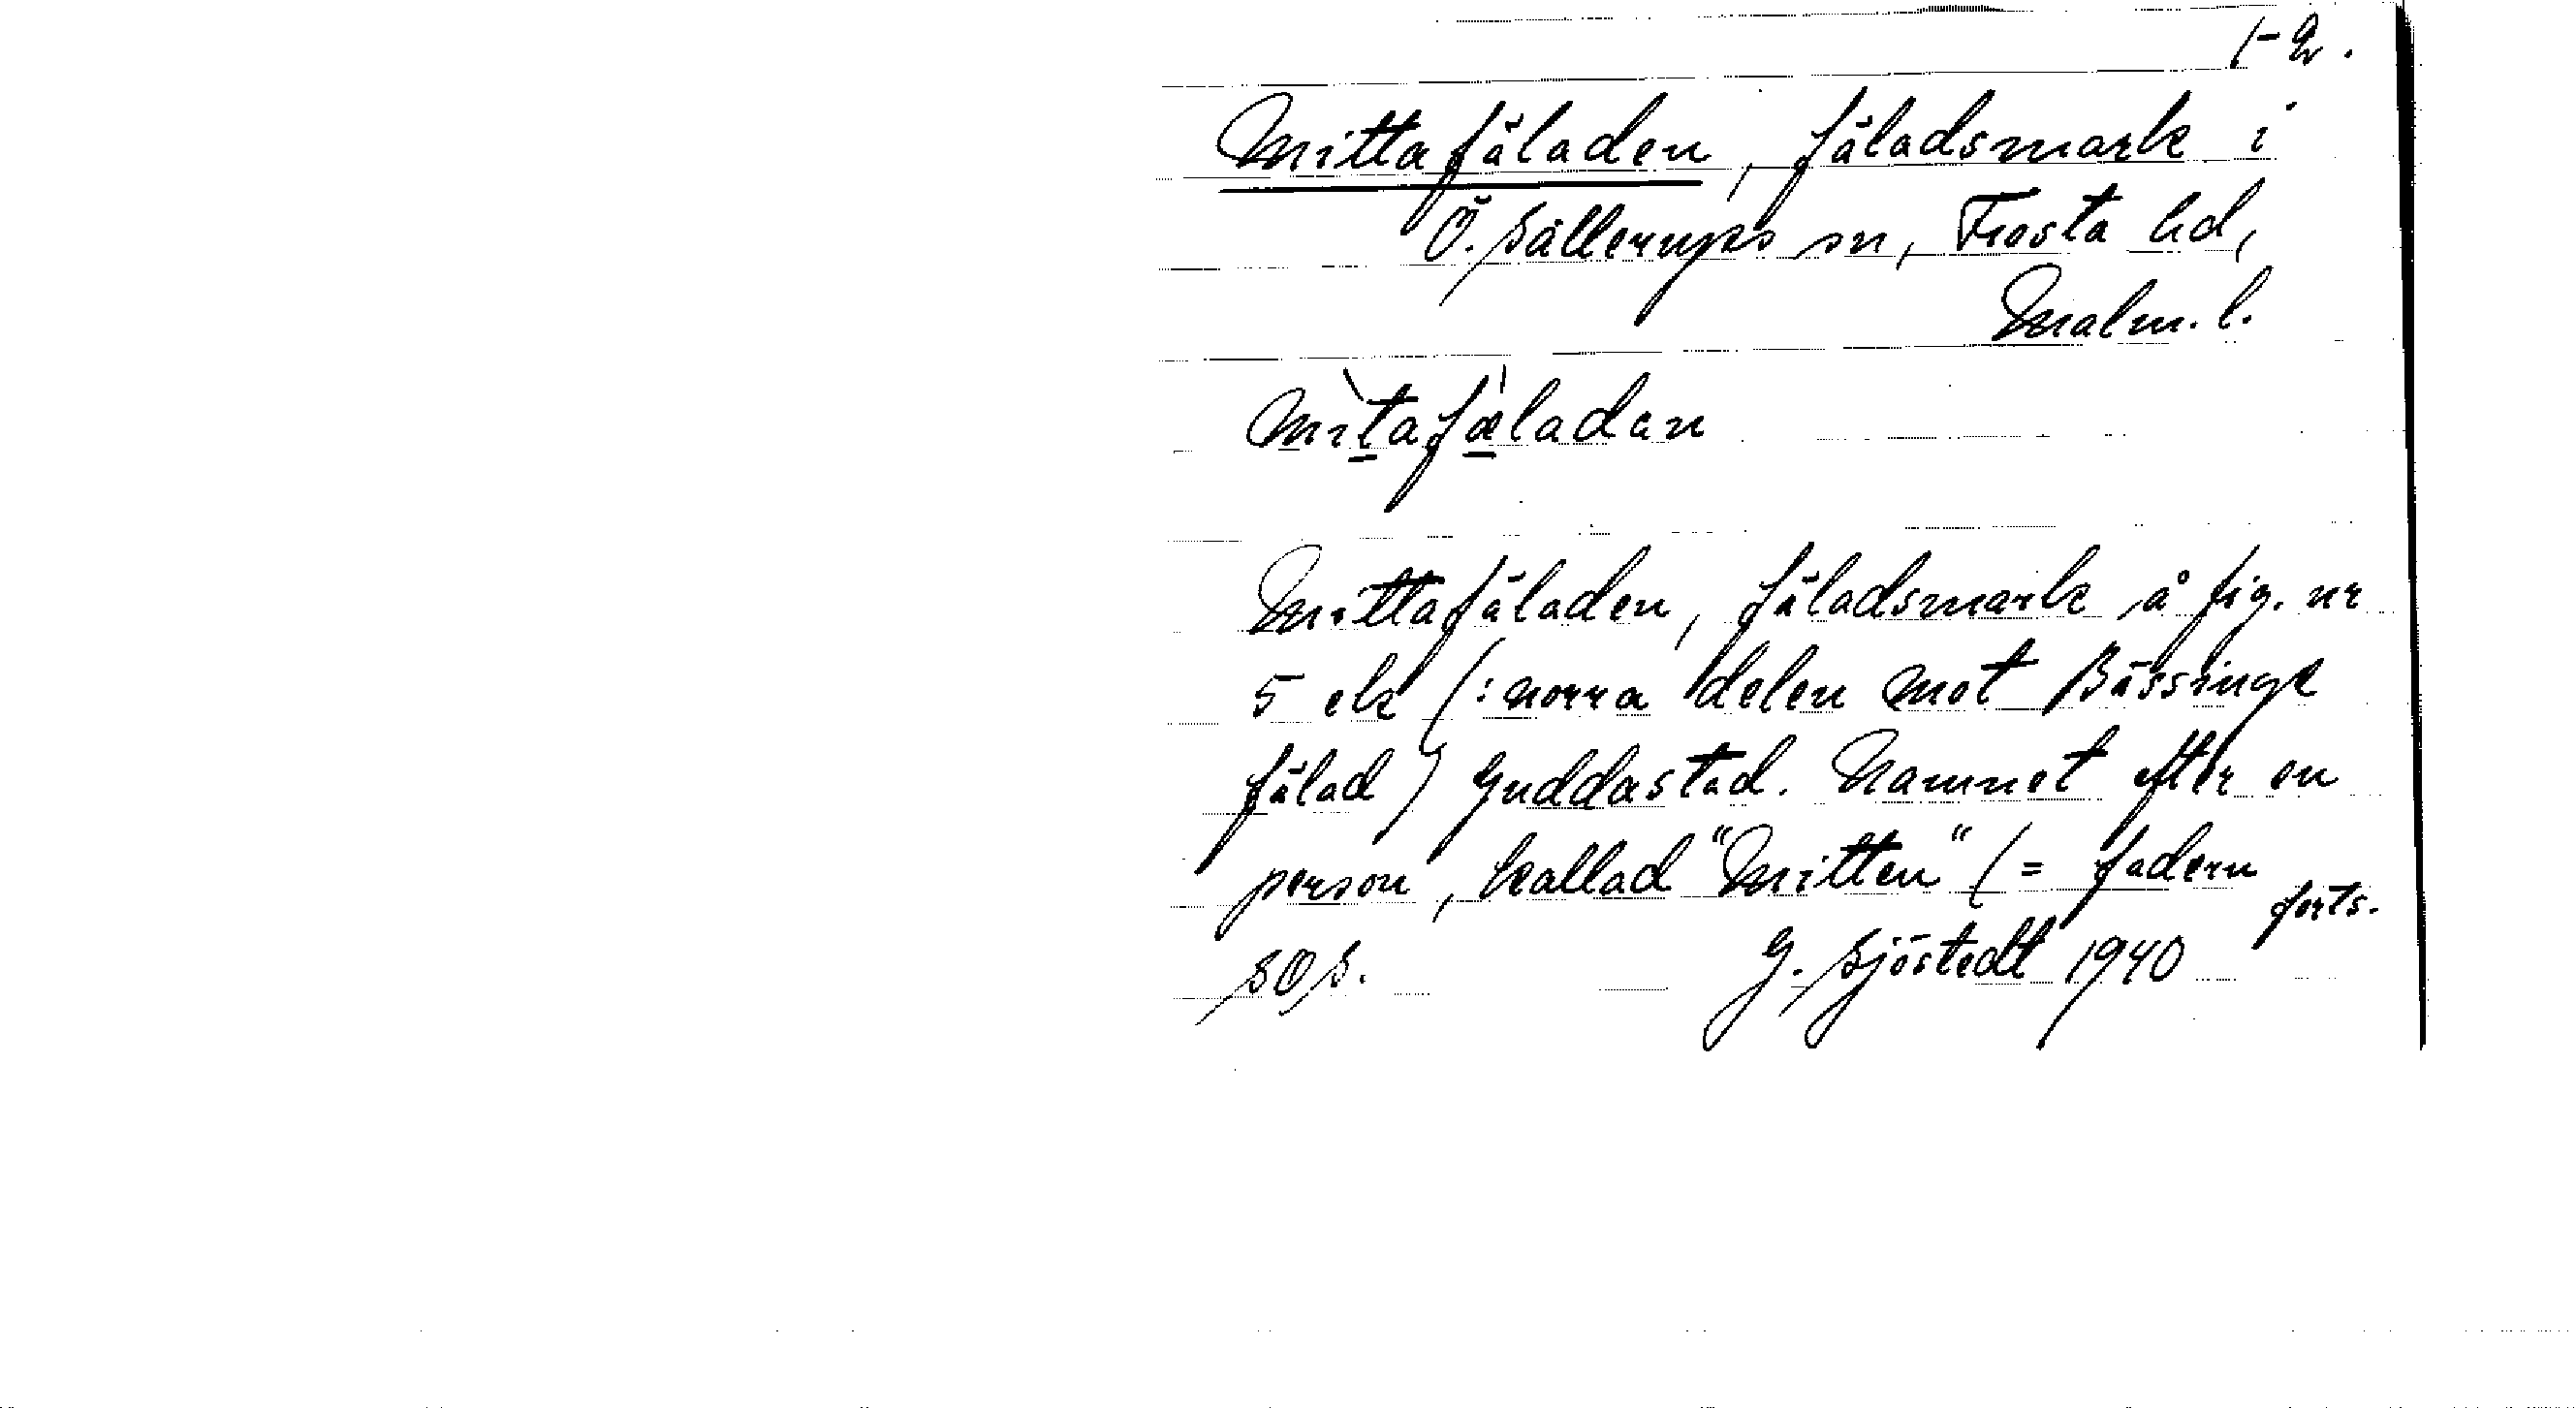 1-2.
Mittafäladen, fäladsmark i
Ö. Sallerups sn, Frosta hd,
Malm. l.
mìtafæ̍ladan
Mittafäladen, fäladsmark å fig. nr
5 ek (: norra delen mot Bässinge
fälad) Guddastad. Namnet efter en
person, kallad "Mitten" (= fadern
forts.
SOS. G. Sjöstedt 1940